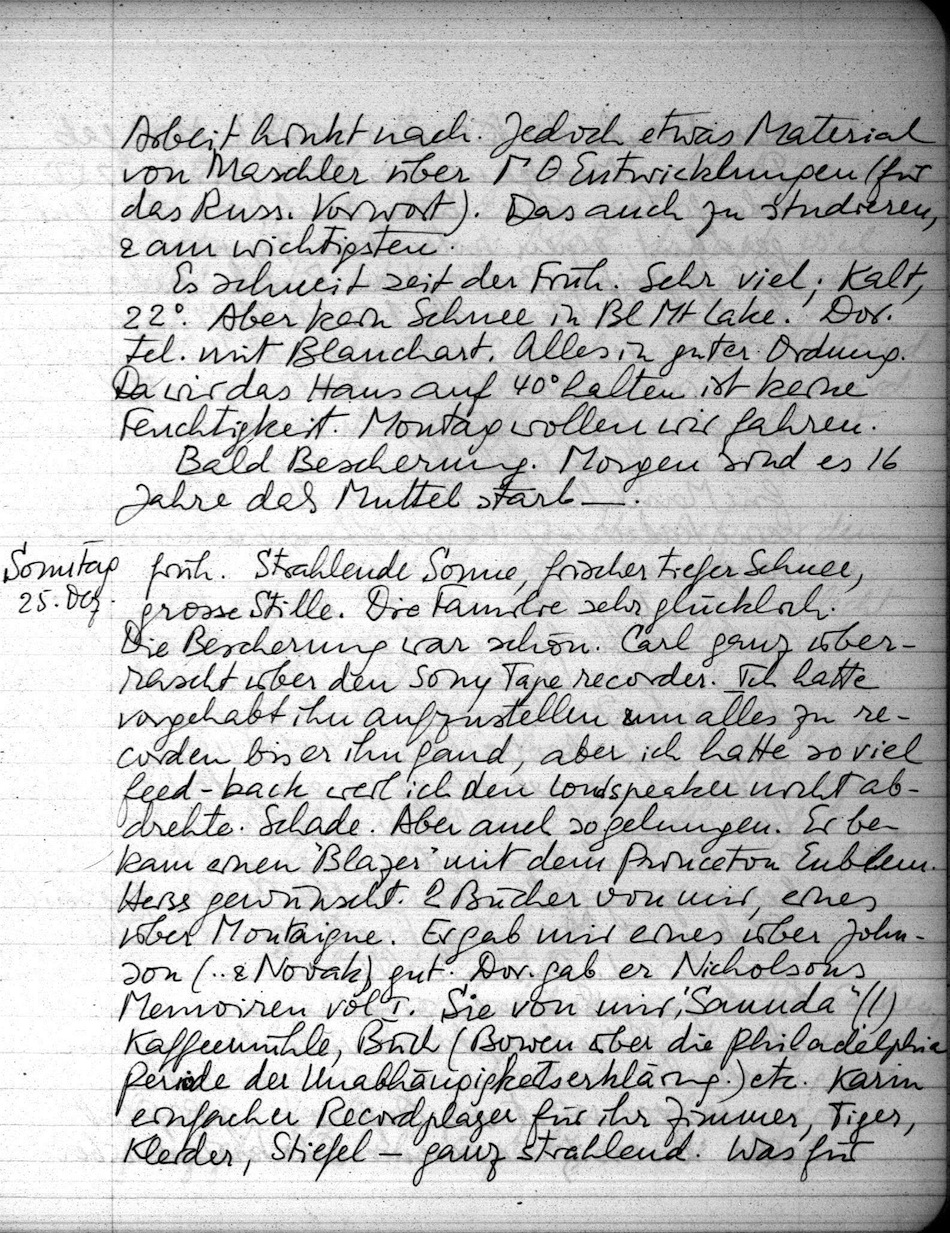 Arbeit hinkt nach. Jedoch etwas Material
von Maschler über M O Entwicklungen (für
das Russ. Vorwort). Das auch zu studieren,
& am wichtigsten.
Es schneit seit der Früh. Sehr viel; Kalt,
22°. Aber kein Schnee in Bl Mt Lake. Dor.
tel. mit Blanchart. Alles in guter Ordnung.
Da wir das Haus auf 40° halten ist keine
Feuchtigkeit. Montag wollen wir fahren.
Bald Bescherung. Morgen sind es 16
Jahre das Muttel starb—.
Sonntag
25. Dez.
früh. Strahlende Sonne, frischer tiefer Schnee,
grosse Stille. Die Familie sehr glücklich.
Die Bescherung war schön. Carl ganz über-
rascht über den Sony Tape recorder. Ich hatte
vorgehabt ihn aufzustellen um alles zu re-
corden bis er ihn fand, aber ich hatte so viel
feed-back weil ich den loudspeaker nicht ab-
drehte. Schade. Aber auch so gelungen. Er be
kam einen "Blazer" mit dem Princeton Emblem.
Heiss gewünscht. 2 Bücher von mir, eines
über Montaigne. Er gab mir eines über John-
son (.. & Novak) gut. Dor. gab er Nicholsons
Memoiren vol I. Sie von mir, (!)
Kaffeemühle, Buch (Bowen über die Philadelphia
periode der Unabhängigkeitserklärung.) etc. Karin
einfacher Recordplayer für ihr Zimmer, Tiger,
Kleider, Stiefel — ganz strahlend. Was für